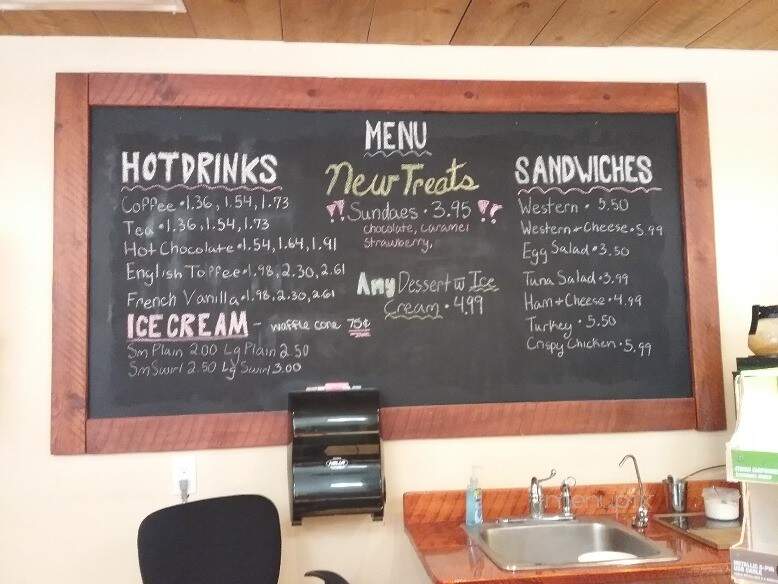 MENU
HOT DRINKS
Coffee • 1.36, 1.54, 1.73
Tea • 1.36, 1.54, 1.73
Hot Chocolate • 1.54, 1.64, 1.91
English Toffee • 1.98, 2.30, 2.61
French Vanilla • 1.98, 2.30, 2.61
ICE CREAM - waffle cone 75¢
Sm Plain 2.00 Lg Plain 2.50
Sm Swirl 2.50 Lg Swirl 3.00
New Treats
!! Sundaes • 3.95 !!
chocolate, caramel
strawberry,
Any Dessert w Ice
Cream • 4.99
SANDWICHES
Western • 5.50
Western + Cheese • 5.99
Egg Salad • 3.50
Tuna Salad • 3.99
Ham + Cheese • 4.99
Turkey • 5.50
Crispy Chicken • 5.99
menupix